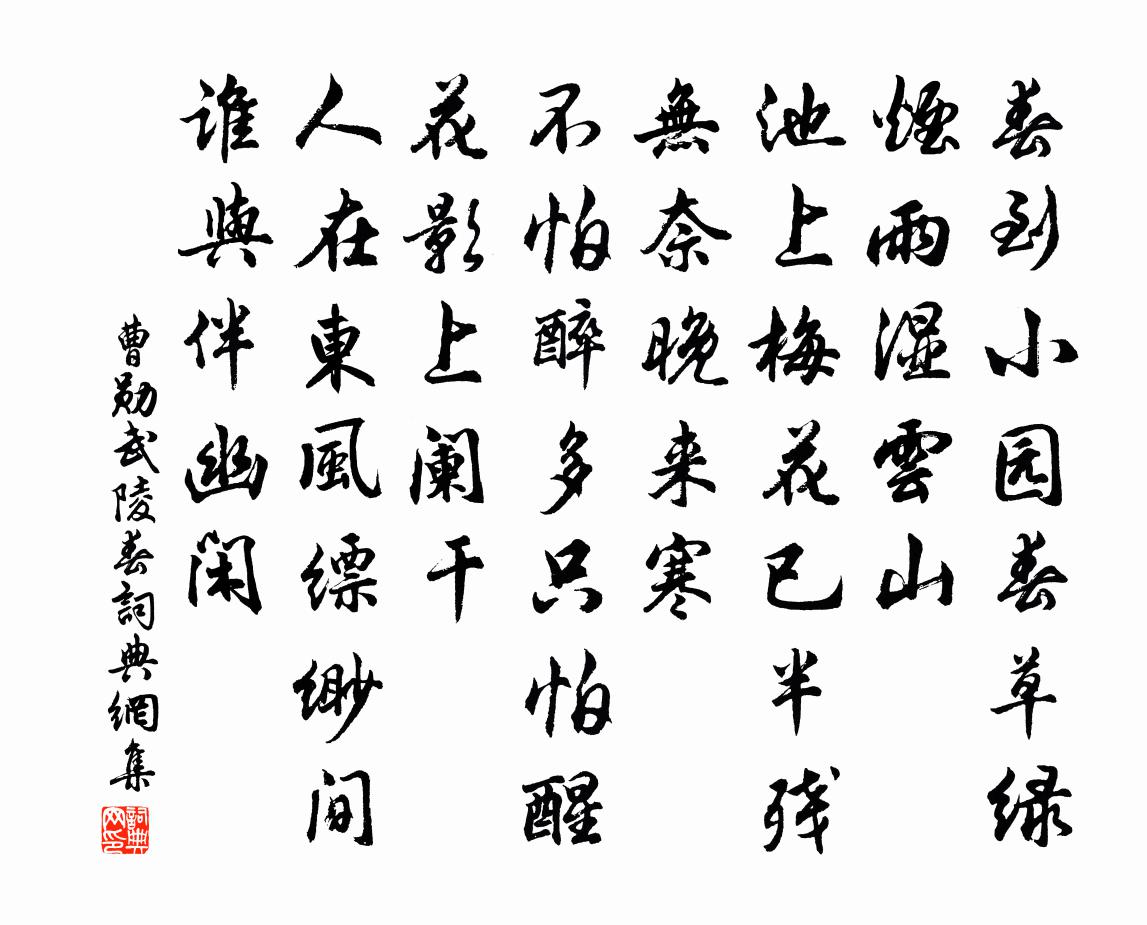 春到小园春草緑
煙雨湿雲山
池上梅花已半残
無奈晚来寒
不怕醉多只怕醒
花影上阑干
人在東風縹緲间
谁與伴幽闲
曹勋武陵春詞典網集
詞典网印